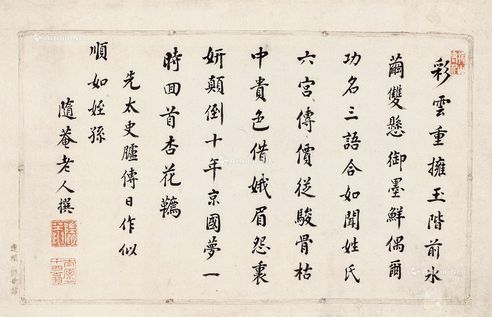 彩雲重擁玉階前氷
繭雙懸御墨鮮偶爾
功名三語合如聞姓氏
六宮傳價從駿骨枯
中貴色借娥眉怨裏
妍顛倒十年京國夢一
時回首杏花韉
先太史臚傳日作似
順如姪孫
隨菴老人撰